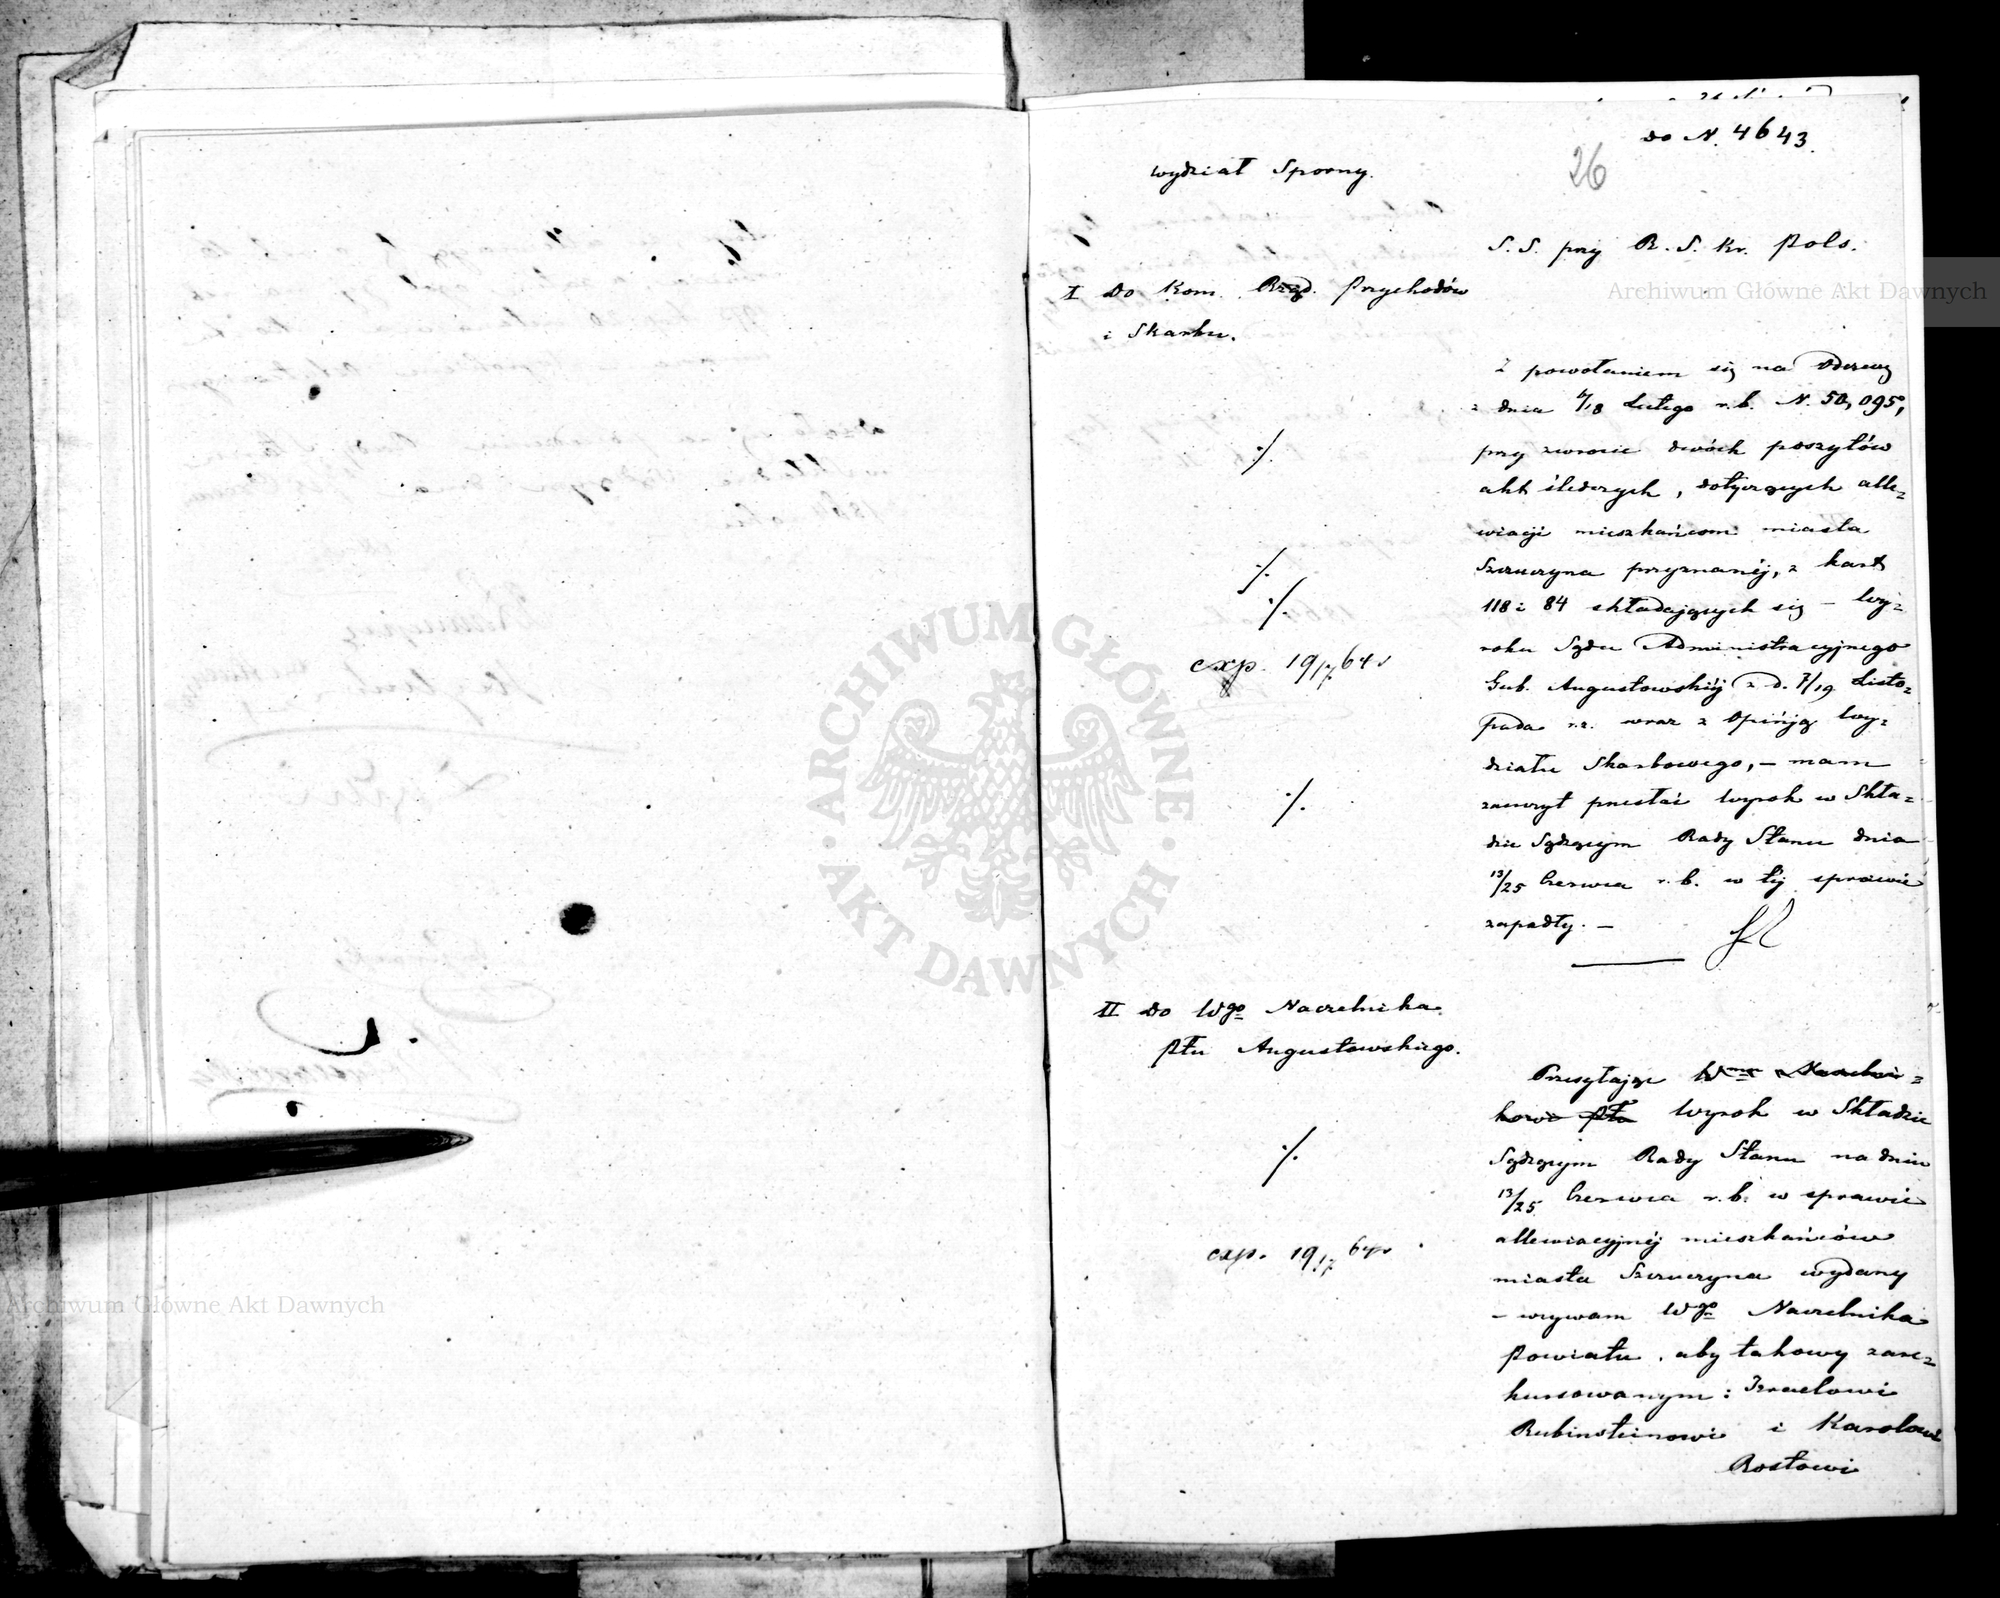 do N. 4643.
26
Wydział Sporny.
S. S. przy R. S. Kr. Pols.
I Do Kom. Rząd. Przychodów
i Skarbu.
Z powołaniem się na Odezwę
z dnia 6/18 Lutego r.b. N. 50,095,
przy zwrocie dwóch poszytów
akt śledczych, dotyczących alle=
wiacji mieszkańcom miasta
Szczuczyna przyznanéj, z kart
118 i 84 składających się – Wy=
roku Sądu Administracyjnego
Gub. Augustowskiéj z d. 7/19 Listo=
pada r.z. wraz z Opinją Wy=
działu Skarbowego, – mam
zaszczyt przesłać Wyrok w Skła=
dzie Sądzącym Rady Stanu dnia
13/25 Czerwca r.b. w téj sprawie
zapadły. –
exp. 19/7 64
II Do Wgo Naczelnika
Ptu Augustowskiego.
Przesyłając Wmu Naczelni=
kowi Ptu Wyrok w Składzie
Sądzącym Rady Stanu na dniu
13/25 Czerwca r.b. w sprawie
allewiacyjnéj mieszkańców
miasta Szczuczyna wydany
– wzywam Wgo Naczelnika
Powiatu, aby takowy zare=
kursowanym: Izraelowi
Rubinsteinowi i Karolowi
Rostowi
exp. 19/7 64
Archiwum Główne Akt Dawnych
Archiwum Główne Akt Dawnych
ARCHIWUM GŁÓWNE AKT DAWNYCH